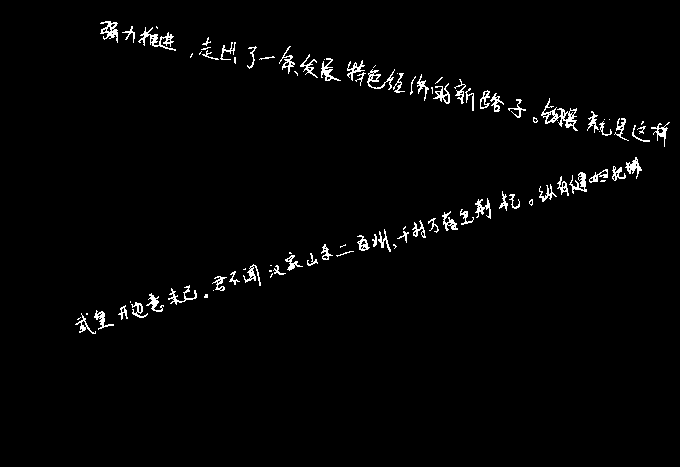 强力推进，走出了一条发展特色经济的新路子。铜陵就是这样
武皇开边意未已。君不闻汉家山东二百州，千村万落生荆杞。纵有健妇把锄